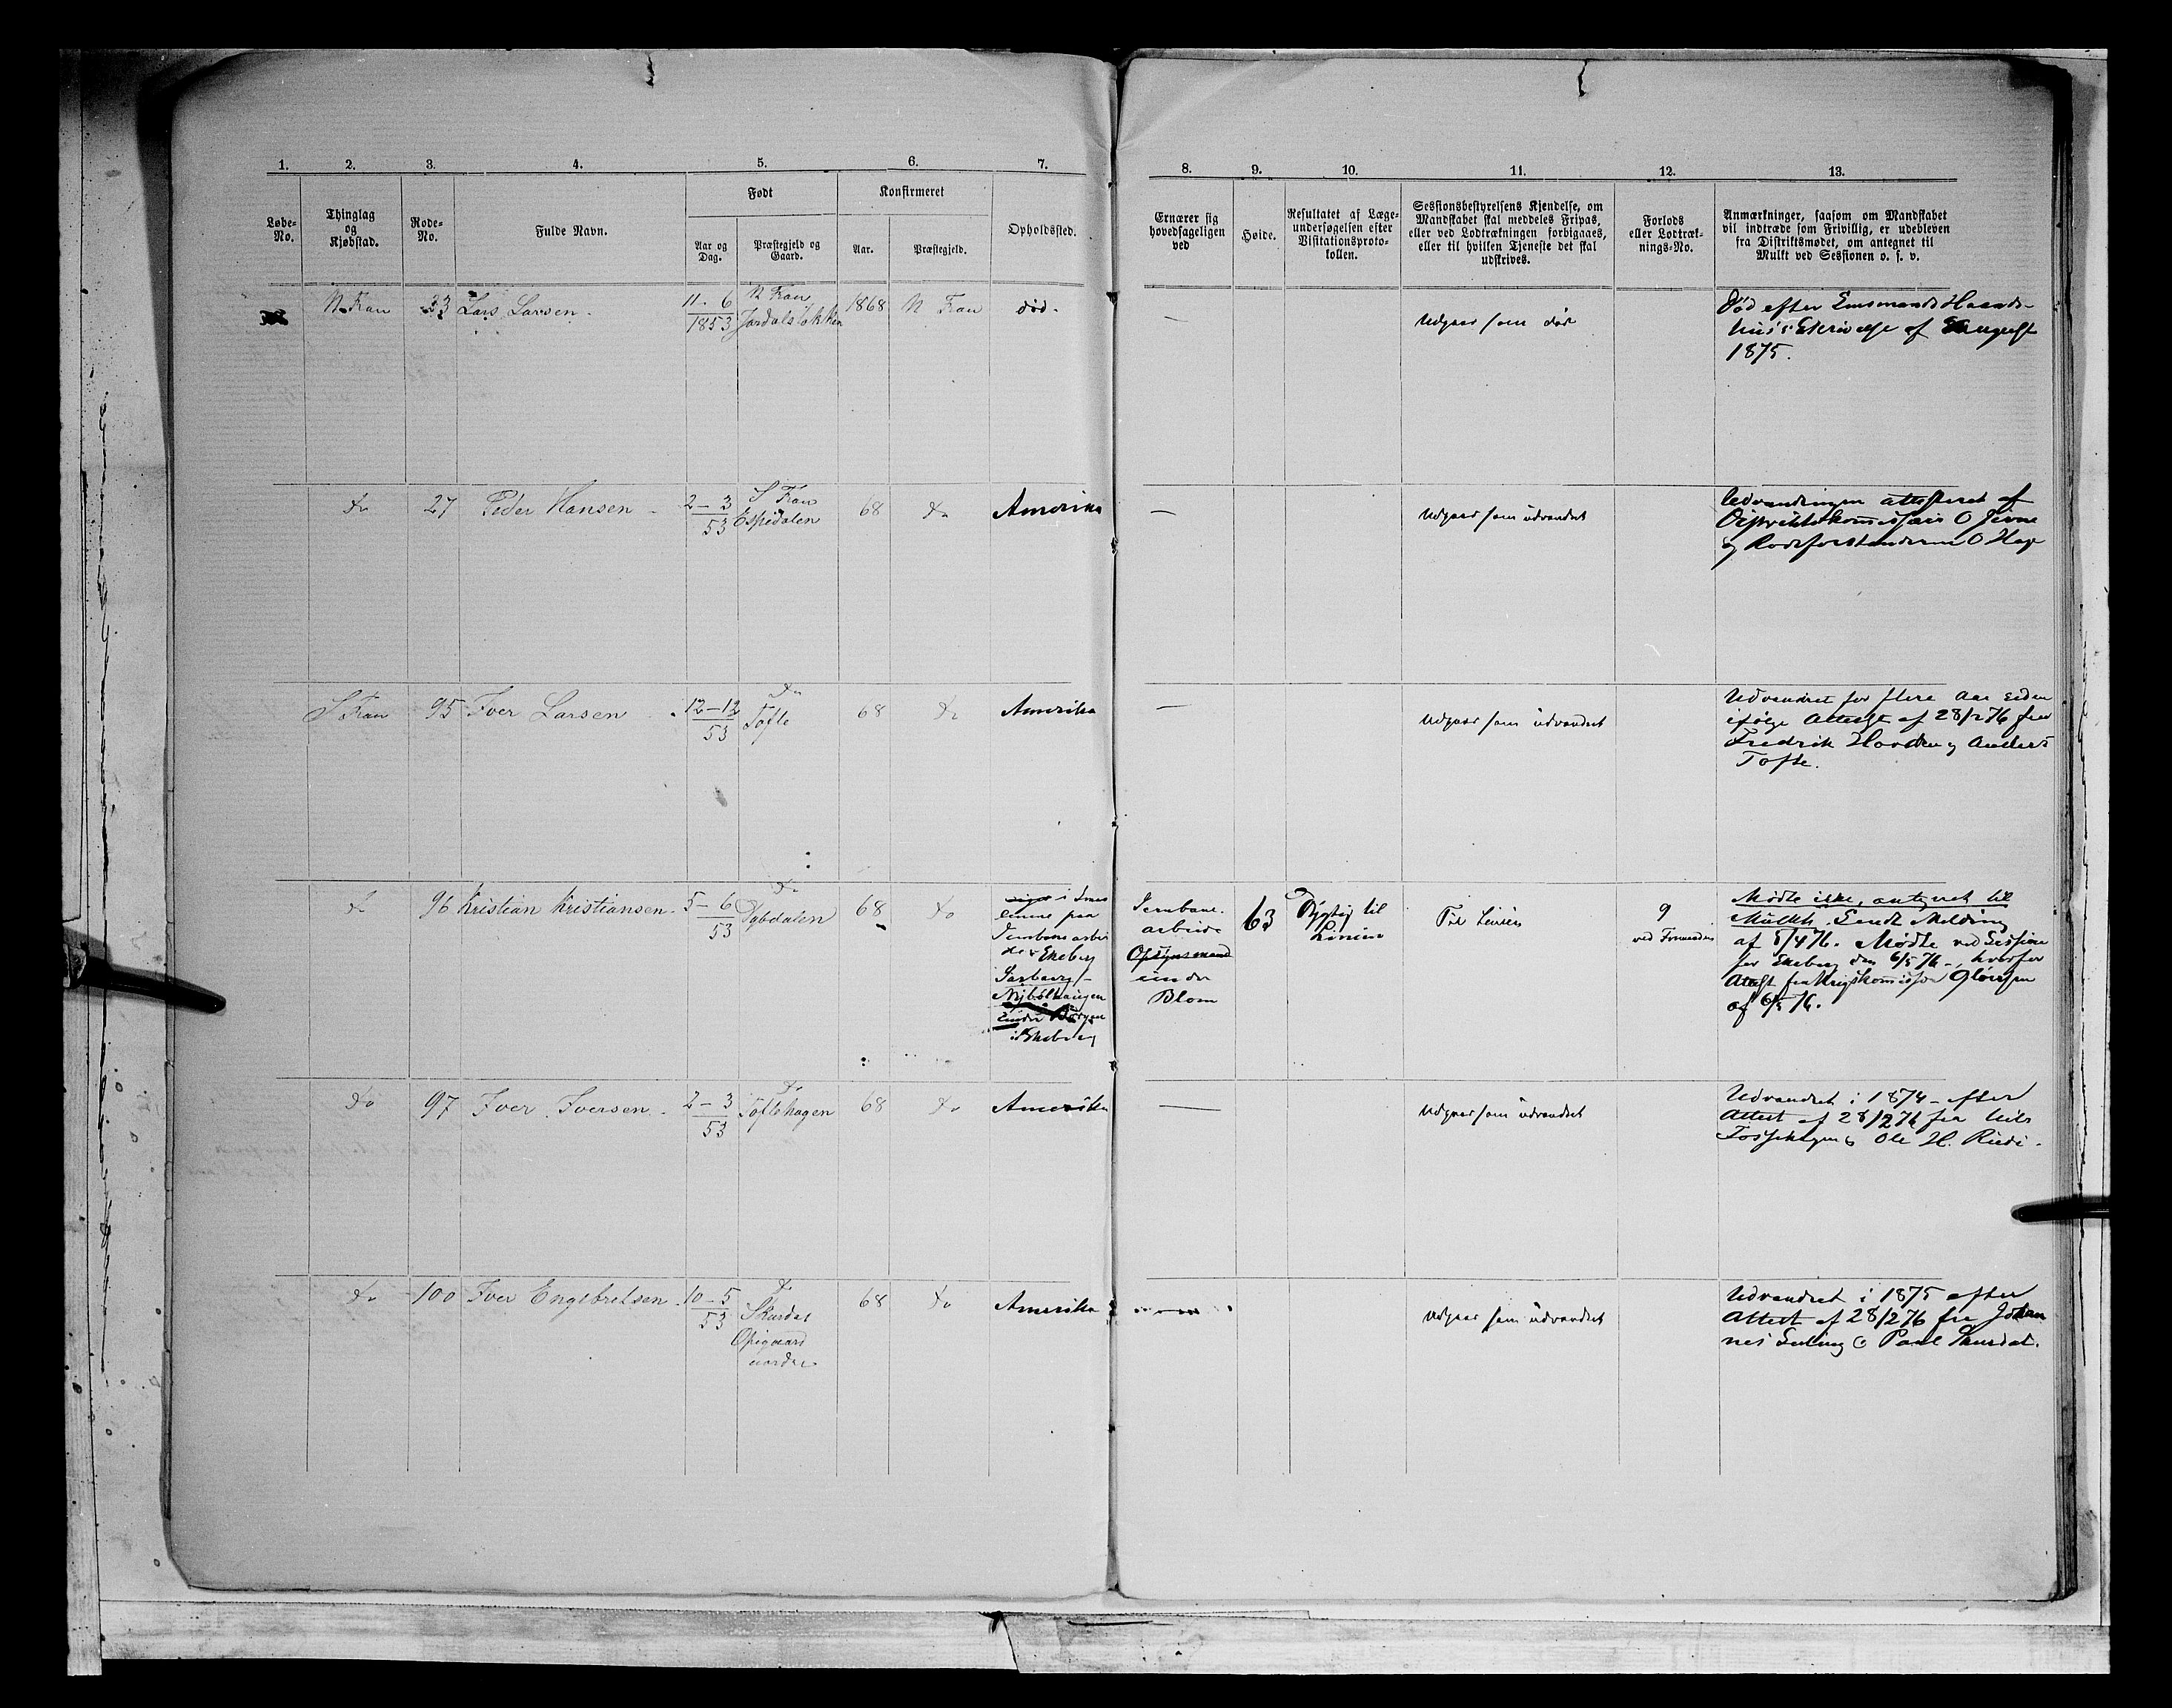 1. 2. 3. 4. 5. 6. 7.
Løbe-No.
Thinglag og Kjøbstad.
Rode-No.
Fulde Navn.
Født
Aar og Dag.
Præstegjeld og Gaard.
Konfirmeret
Aar.
Præstegjeld.
Opholdssted.
8. 9. 10. 11. 12. 13.
Ernærer sig hovedsageligen ved
Høide.
Resultatet af Læge-
undersøgelsen efter
Visitationsproto-
kollen.
Sessionsbestyrelsens Kjendelse, om
Mandskabet skal meddeles Fripas,
eller ved Lodtrækningen forbigaaes,
eller til hvilken Tjeneste det skal
udskrives.
Forlods
eller Lodtræk-
nings-No.
Anmærkninger, saasom om Mandskabet
vil indtræde som Frivillig, er udebleven
fra Distriktsmødet, om antegnet til
Mulkt ved Sessionen o. s. v.
N. Fron 33 Lars Larsen - 11-6 1853 N Fron 1868 N Fron død.
— Udgaar som død
Død efter Lensmands
af August
1875.
do 27 Peder Hansen - 2-3 53 S Fron Espedalen 68 do Amerika
— Udgaar som udvandret
Udvandringen attesteret af
O
og Rodeforstanderen O
S Fron 95 Iver Larsen - 12-12 53 do Tofte 68 do Amerika
— Udgaar som udvandret
Udvandret for flere Aar siden
ifølge Attest af 28/2 76 fra
Fredrik og Anders
Tofte.
do 96 Kristian Kristiansen - 5-6 53 do 68 do
i
paa
Ekeberg
under
i Ekeberg
Jernbane-
arbeide
Opsynsmand
under
Blom
63
Dygtig til
Linien
Til Linien
9
Mødte ikke, antegnet til
Mulkt. Sendt Melding
af 5/4 76. Mødte ved Session
for Ekeberg den 6/5 76 -, hvorfor
Attest fra Krigskommissær
af 6/5 76.
do 97 Iver Iversen - 2-3 53 do Toftehagen 68 do Amerika
— Udgaar som udvandret
Udvandret i 1874 - efter
Attest af 28/2 76 fra Nils
Ole H.
do 100 Iver Engebretsen - 10-5 53 do Skurdal Opigaard nordre 68 do Amerika
Udgaar som udvandret
Udvandret i 1875 efter
Attest af 28/2 76 fra Johan
nes & Paul Skurdal.